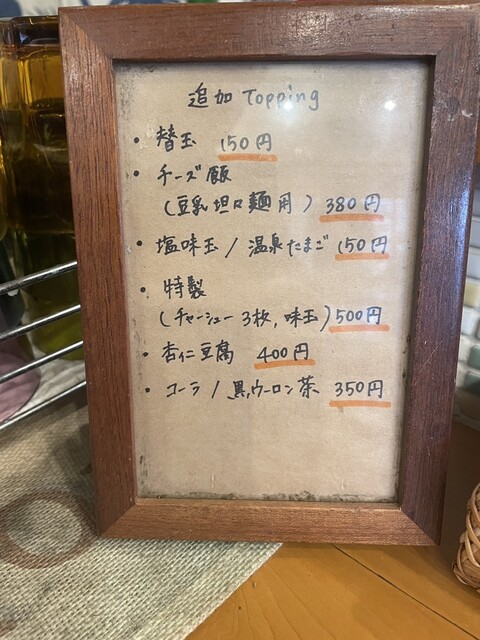 追加 Topping
・替玉 150円
・チーズ飯
(豆乳坦々麺用) 380円
・塩味玉 / 温泉たまご 150円
・特製
(チャーシュー3枚, 味玉) 500円
・杏仁豆腐 400円
・コーラ / 黒ウーロン茶 350円